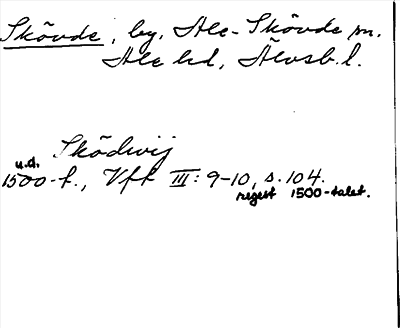 Skövde, by, Ale-Skövde sn.
Ale hd, Älvsb. l.
Sködwij
u.d.
1500-t., Vft III: 9-10, s. 104.
regest 1500-talet.